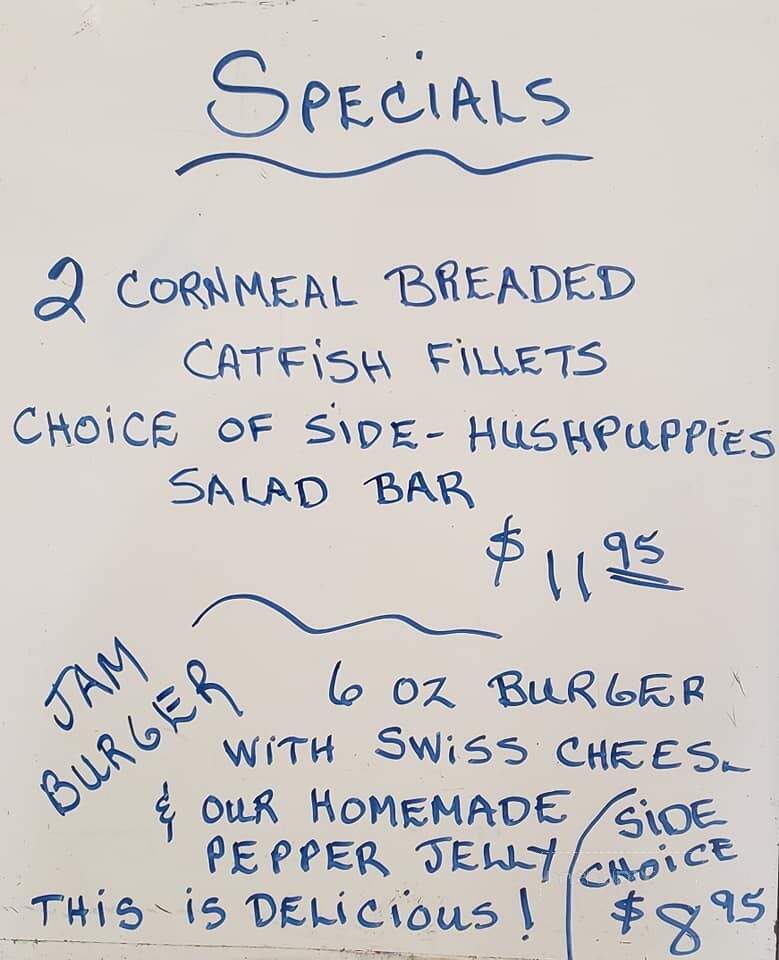 SPECIALS
2 CORNMEAL BREADED
CATFISH FILLETS
CHOICE OF SIDE - HUSHPUPPIES
SALAD BAR
$11 95
JAM
BURGER
6 OZ BURGER
WITH SWISS CHEES
& OUR HOMEMADE
PEPPER JELLY
THIS IS DELICIOUS!
SIDE
CHOICE
$8 95